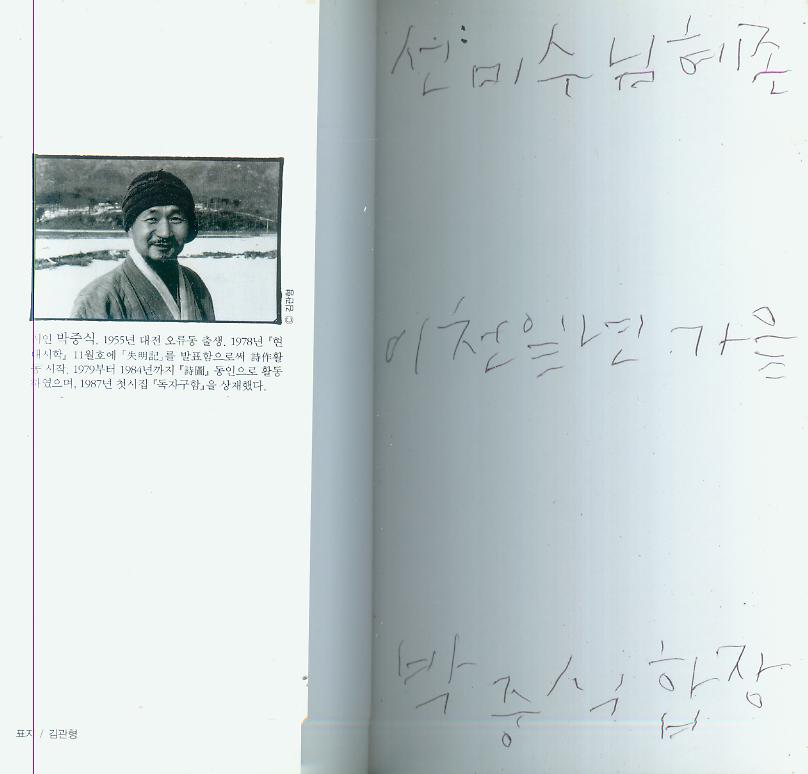 © 김관형
시인 박중식. 1955년 대전 오류동 출생. 1978년 『현
대시학』 11월호에 「失明記」를 발표함으로써 詩作활
동 시작. 1979부터 1984년까지 『詩圖』 동인으로 활동
하였으며, 1987년 첫시집 『독자구함』을 상재했다.
표지 / 김관형
선미수님혜존
이천일년 가을
박중식 합장